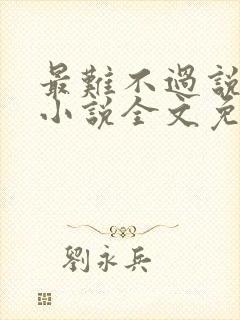 最難不過說
小說全文免
劉永兵